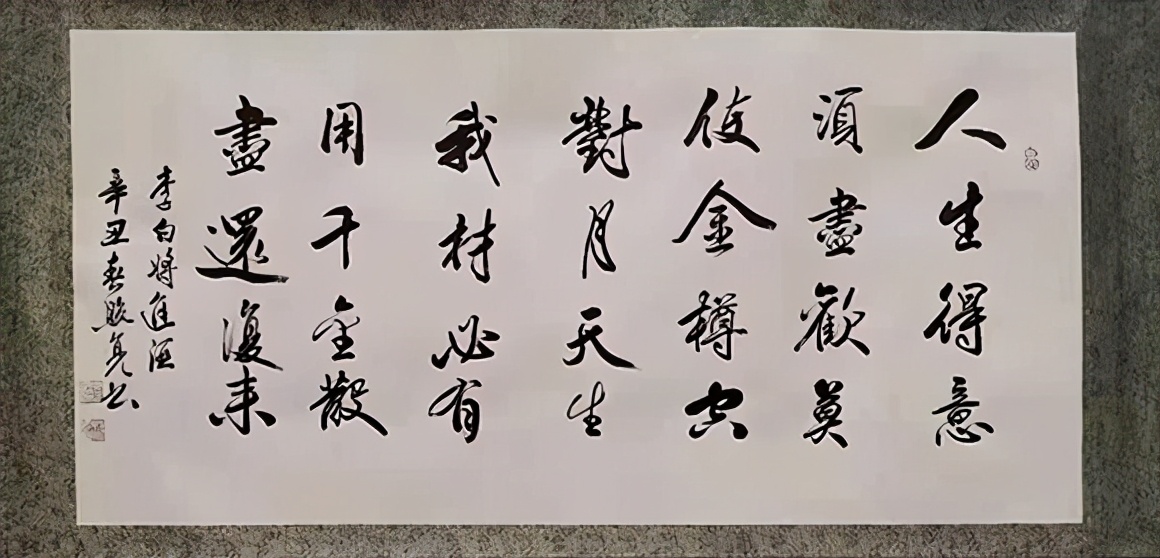 人生得意
須盡歡莫
使金樽空
對月天生
我材必有
用千金散
盡還復来
李白將進酒
辛丑春